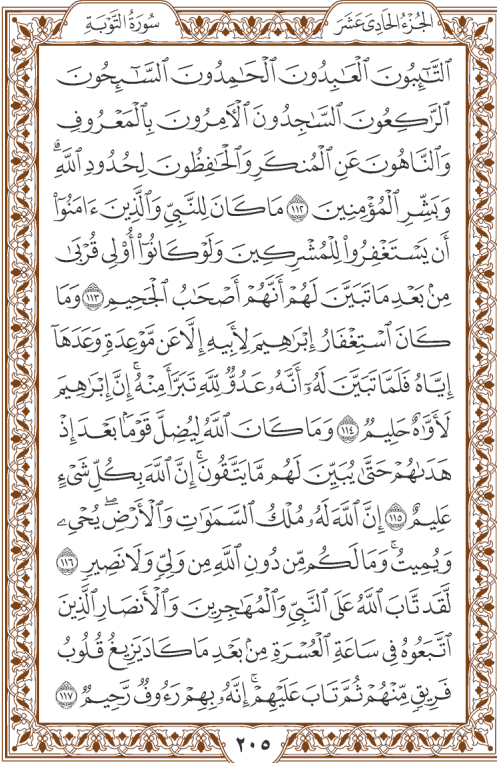 الجُزْءُ الحَادِى عَشَرَ
سُورَةُ التَّوْبَةِ
ٱلتَّٰٓئِبُونَ ٱلْعَٰبِدُونَ ٱلْحَٰمِدُونَ ٱلسَّٰٓئِحُونَ
ٱلرَّٰكِعُونَ ٱلسَّٰجِدُونَ ٱلْأٓمِرُونَ بِٱلْمَعْرُوفِ
وَٱلنَّاهُونَ عَنِ ٱلْمُنكَرِ وَٱلْحَٰفِظُونَ لِحُدُودِ ٱللَّهِۗ
وَبَشِّرِ ٱلْمُؤْمِنِينَ ١١٢ مَا كَانَ لِلنَّبِيِّ وَٱلَّذِينَ ءَامَنُوٓاْ
أَن يَسْتَغْفِرُواْ لِلْمُشْرِكِينَ وَلَوْ كَانُوٓاْ أُوْلِى قُرْبَىٰ
مِنۢ بَعْدِ مَا تَبَيَّنَ لَهُمْ أَنَّهُمْ أَصْحَٰبُ ٱلْجَحِيمِ ١١٣ وَمَا
كَانَ ٱسْتِغْفَارُ إِبْرَٰهِيمَ لِأَبِيهِ إِلَّا عَن مَّوْعِدَةٍ وَعَدَهَآ
إِيَّاهُ فَلَمَّا تَبَيَّنَ لَهُۥٓ أَنَّهُۥ عَدُوٌّ لِّلَّهِ تَبَرَّأَ مِنْهُۚ إِنَّ إِبْرَٰهِيمَ
لَأَوَّٰهٌ حَلِيمٌ ١١٤ وَمَا كَانَ ٱللَّهُ لِيُضِلَّ قَوْمَۢا بَعْدَ إِذْ
هَدَىٰهُمْ حَتَّىٰ يُبَيِّنَ لَهُم مَّا يَتَّقُونَۚ إِنَّ ٱللَّهَ بِكُلِّ شَىْءٍ
عَلِيمٌ ١١٥ إِنَّ ٱللَّهَ لَهُۥ مُلْكُ ٱلسَّمَٰوَٰتِ وَٱلْأَرْضِۖ يُحْىِۦ
وَيُمِيتُۚ وَمَا لَكُم مِّن دُونِ ٱللَّهِ مِن وَلِىٍّ وَلَا نَصِيرٍ ١١٦
لَّقَد تَّابَ ٱللَّهُ عَلَى ٱلنَّبِىِّ وَٱلْمُهَٰجِرِينَ وَٱلْأَنصَارِ ٱلَّذِينَ
ٱتَّبَعُوهُ فِى سَاعَةِ ٱلْعُسْرَةِ مِنۢ بَعْدِ مَا كَادَ يَزِيغُ قُلُوبُ
فَرِيقٍ مِّنْهُمْ ثُمَّ تَابَ عَلَيْهِمْۚ إِنَّهُۥ بِهِمْ رَءُوفٌ رَّحِيمٌ ١١٧
٢٠٥